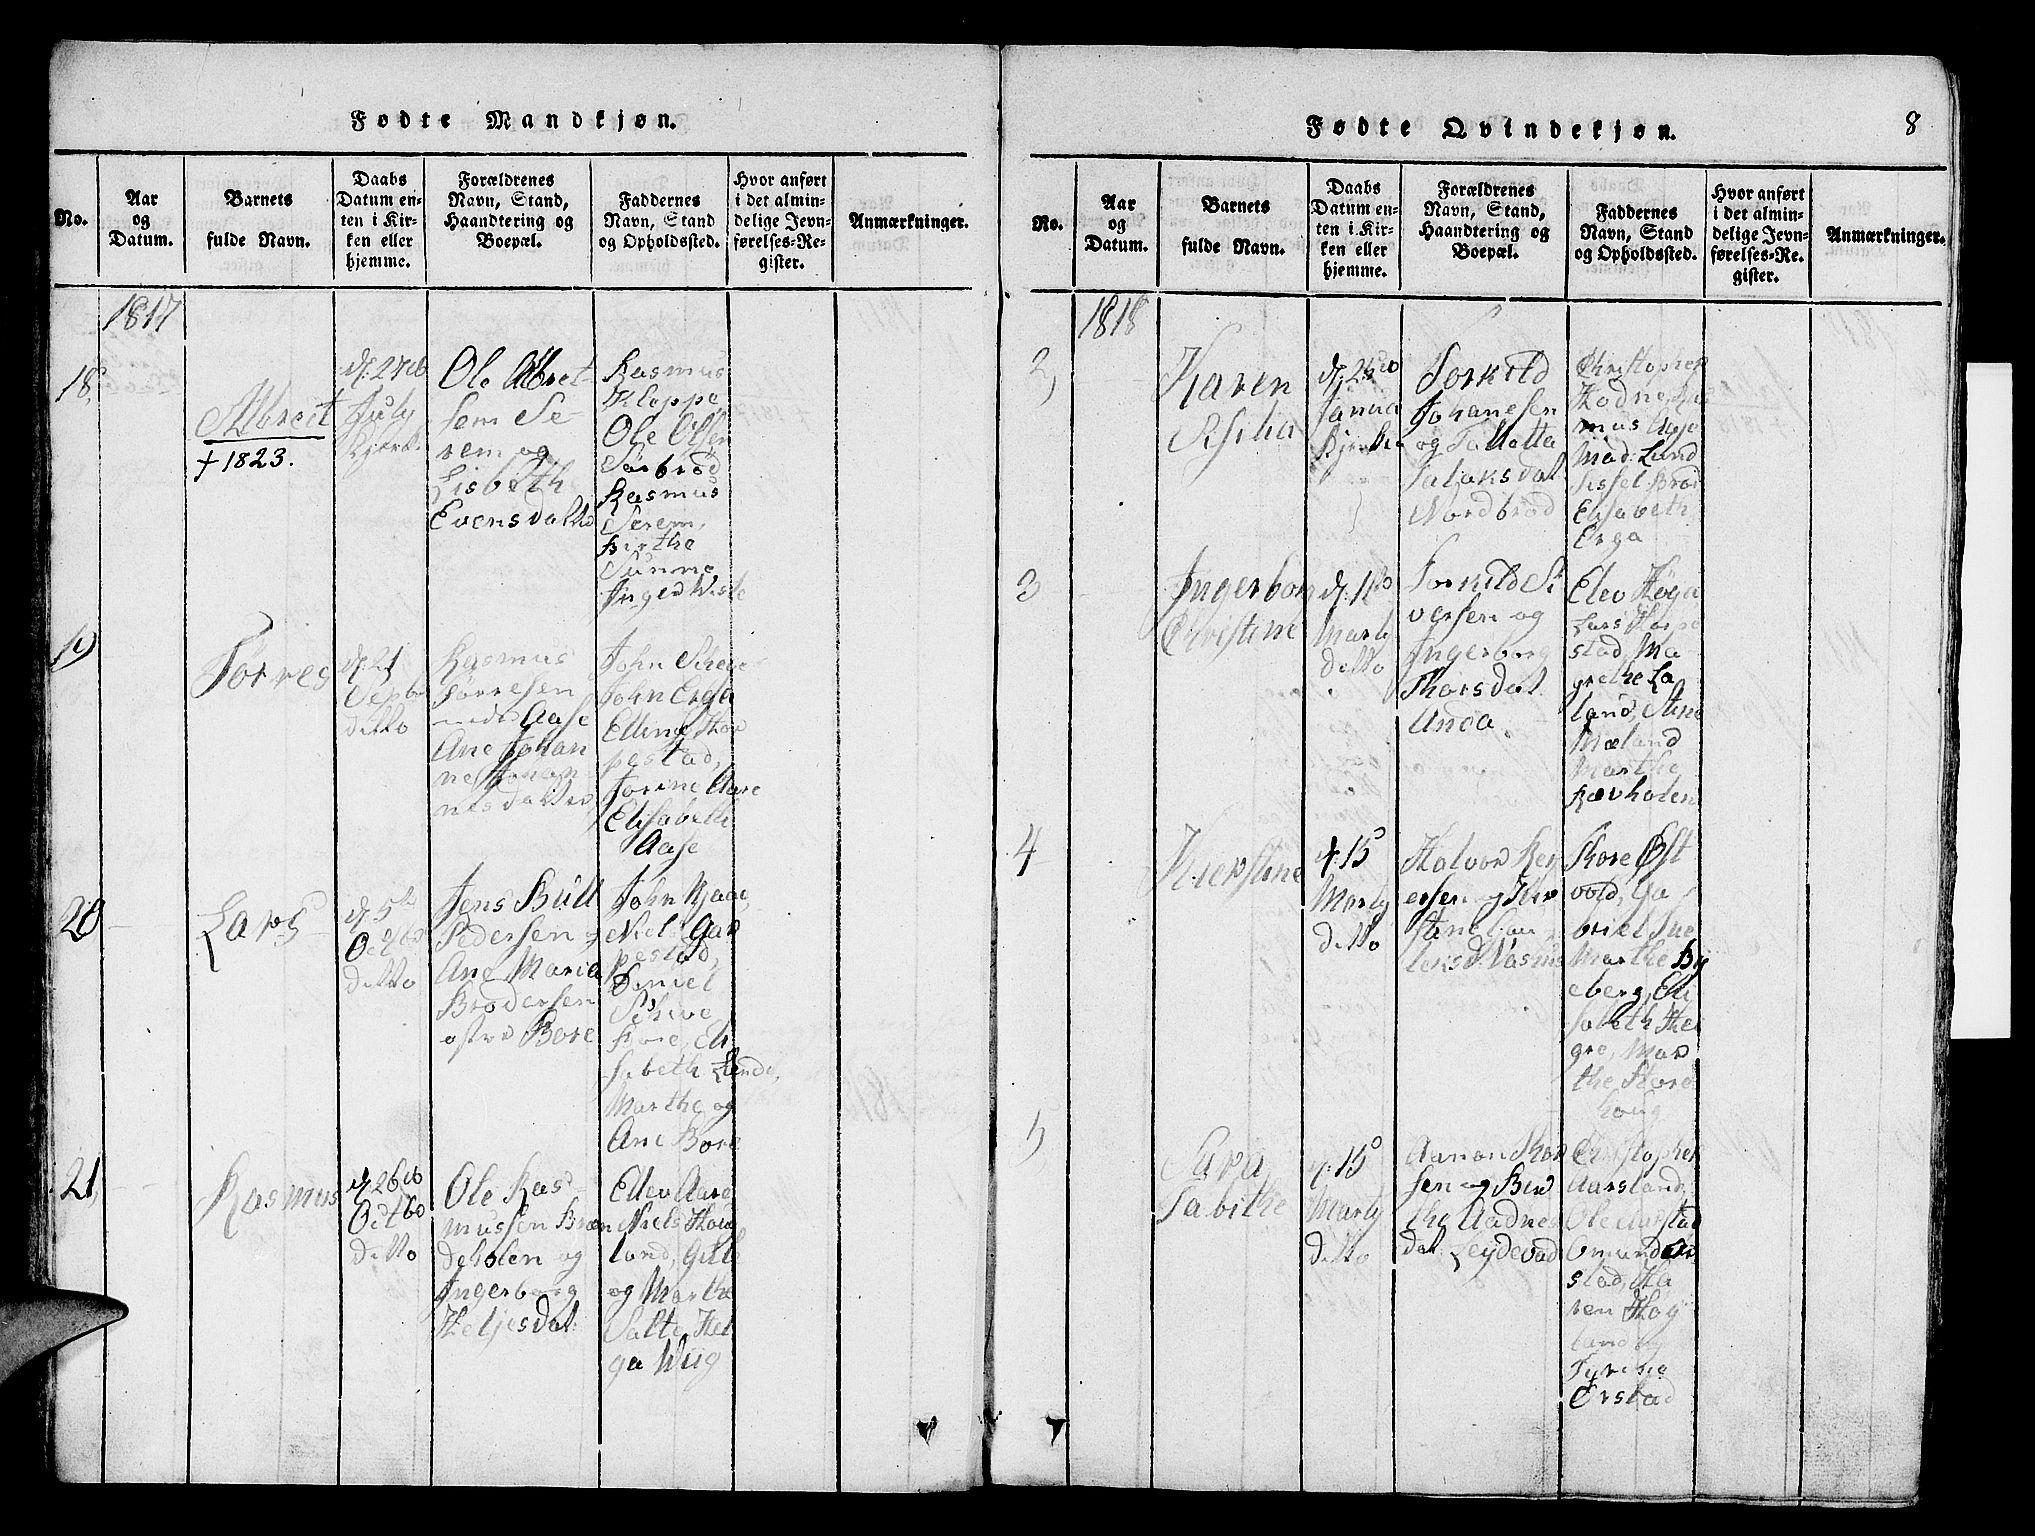 Fødte Mandkjøn.
No.
Aar
og
Datum.
Barnets
fulde Navn.
Daabs
Datum en-
ten i Kir-
ken eller
hjemme.
Forældrenes
Navn, Stand,
Haandtering og
Boepæl.
Faddernes
Navn, Stand
og Opholdssted.
Hvor anført
i det almin-
delige Jevn-
førelses-Re-
gister.
Anmærkninger.
1817
18,
Albreit
+ 1823.
d. 27de
July
Ole Albret-
sem Se-
rem og
Lisbeth
Evensdatte
Rasmus
Kleppe
Ole Olsen
Sørbrød
Rasmus
Serem,
Birthe
Sunne
Inger Wiste
19
Tørres
d. 21
Septb
ditto
Rasmus
Tørresen
Aase
Ane Johan
ne Johan
nisdatter
John Scheie
John Erga
Ellene Hor
pestad,
Jorine Aare
Elisabeth
Aase
20
Lars
d. 5te
Octbo
ditto
Jens Bull
Pedersen og
Ane Maria
Brodersen
østre Bore
John Kjaae,
Niels Gar
pestad,
Daniel
Schive
Bore, Eli
sabeth Lande,
Marthe og
Ane Bore
21,
Rasmus
d. 26de
Octbo
ditto
Ole Ras-
mussen Bræn
deholen og
Ingerborg
Heljesdat:
Ellev Aare
Niels Hou
land, Guli
og Marthe
Salte, Hel
ga Wiig
Fødte Qvindekjøn.
8
No.
Aar
og
Datum.
Barnets
fulde Navn.
Daabs
Datum en-
ten i Kir-
ken eller
hjemme.
Forældrenes
Navn, Stand,
Haandtering og
Boepæl.
Faddernes
Navn, Stand
og Opholdssted.
Hvor anført
i det almin-
delige Jevn-
førelses-Re-
gister.
Anmærkninger.
1818
2,
Karen
Sisilia
d. 25de
Janua
Kjerke
Torkild
Johanesen
og Tallatta
Salaksdat
Nordbrød
Christopher
Hodne,
mus Aase
Mad: Lund
Sissel Brød
Elisabeth
Erga
3
Ingerbor
Christine
Marti
ditto
Torkild Si
versen og
Ingerborg
Thorsdat
Anda.
Elev Høga
Lars Horpe
stad, Ma-
grethe La
land, Stine
Mæland
Marthe
Rævholen
4
Kierstine
d. 15
Martj
ditto
Halvor Rey
ersen og Kir
stine
Tore Øst
vold, Ga
briel Sue
Marthe By
eberg, Eli
sabeth Hei
gre, Mar
the Store
houg
5
Sara
Tabithe
d. 15
Martj
ditto
Aanon Thor
sen og Ber
the Aadnes
dat: Leydevad
Christopher
Aarsland,
Ole Aarstad
Omund Ør
stad, Ka
ren Høy
land og
Tyrine
Ørstad